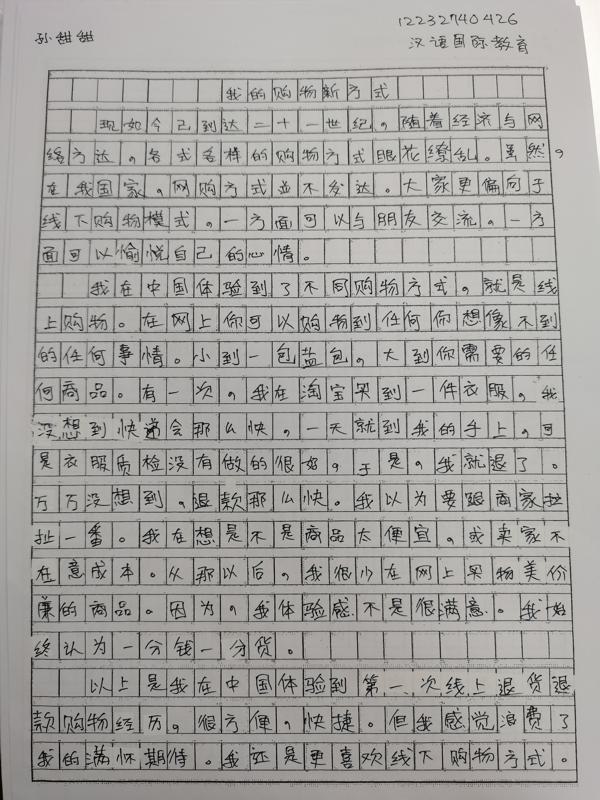 12232740426
孙甜甜
汉语国际教育
我的购物新方式
现如今已到达二十一世纪。随着经济与网
络方达。各式各样的购物方式眼花缭乱。虽然,
在我国家,网购方式并不发达。大家更偏向于
线下购物模式。一方面可以与朋友交流。一方
面可以愉悦自己的心情。
我在中国体验到了不同购物方式。就是线
上购物。在网上你可以购物到任何你想像不到
的任何事情。小到一包盐包。大到你需要的任
何商品。有一次,我在淘宝买到一件衣服。我
没想到快递会那么快。一天就到我的手上。可
是衣服质检没有做的很好,于是,我就退了。
万万没想到,退款那么快。我以为要跟商家扯
扯一番。我在想是不是商品太便宜,或卖家不
在意成本。从那以后,我很少在网上买物美价
廉的商品。因为,我体验感不是很满意。我始
终认为一分钱一分货。
以上是我在中国体验到第一次线上退货退
款购物经历。很方便,快捷。但我感觉浪费了
我的满怀期待。我还是更喜欢线下购物方式。